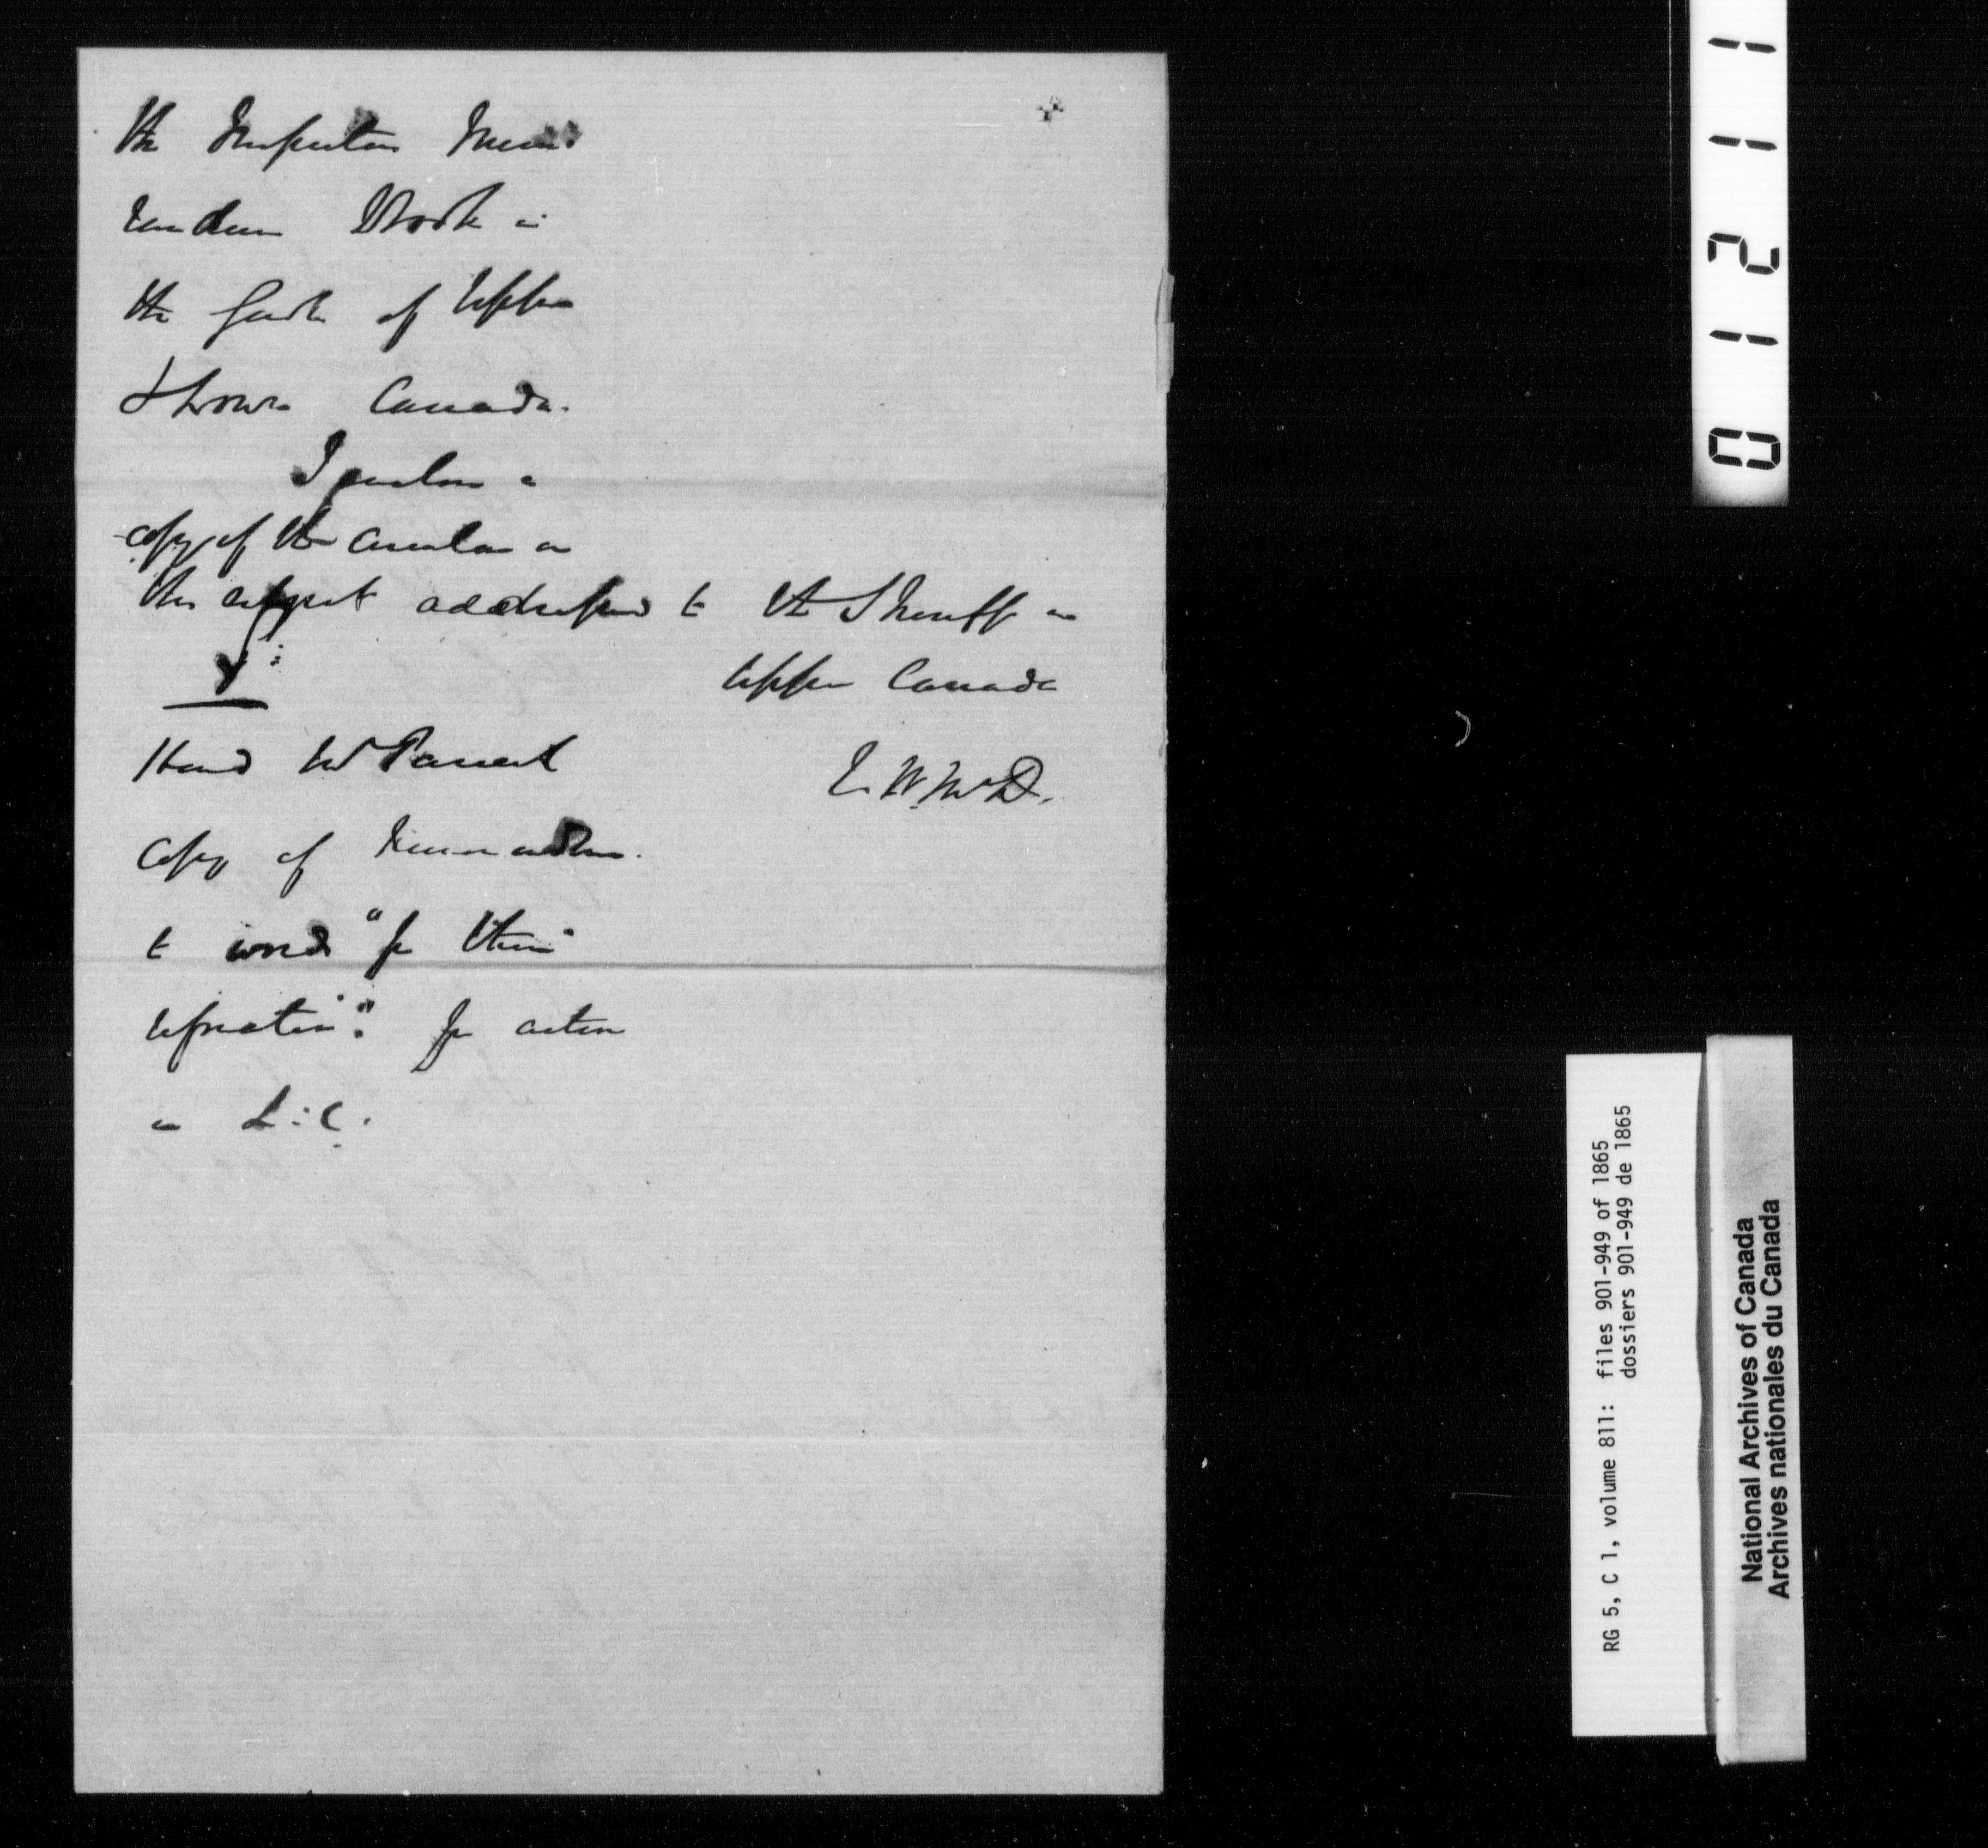 the Inspectors Memo
randum Book in
the Gaols of Upper
& Lower Canada.
I enclose a
copy of the circular on
this subject addressed to the Sheriffs in
Upper Canada
E. W. McD.
Hand Mr Parent
Copy of Memorandum.
to words "for their
information". for action
in L:C.
01211
RG 5, C 1, volume 811: files 901-949 of 1865
dossiers 901-949 de 1865
National Archives of Canada
Archives nationales du Canada